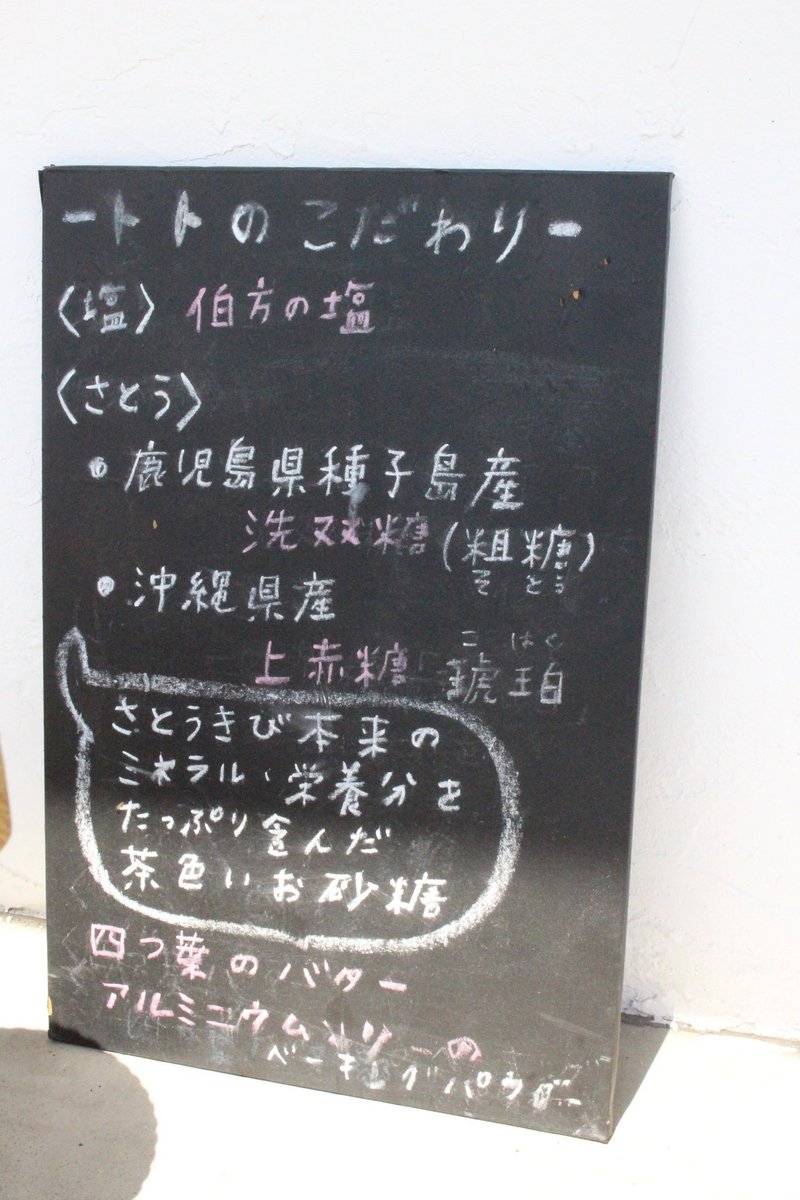 ートトのこだわりー
〈塩〉 伯方の塩
〈さとう〉
・鹿児島県種子島産
洗双糖(粗糖)
そとう
・沖縄県産
こはく
上赤糖 琥珀
さとうきび本来の
ミネラル、栄養分を
たっぷり含んだ
茶色いお砂糖
四つ葉のバター
アルミニウムフリーの
ベーキングパウダー